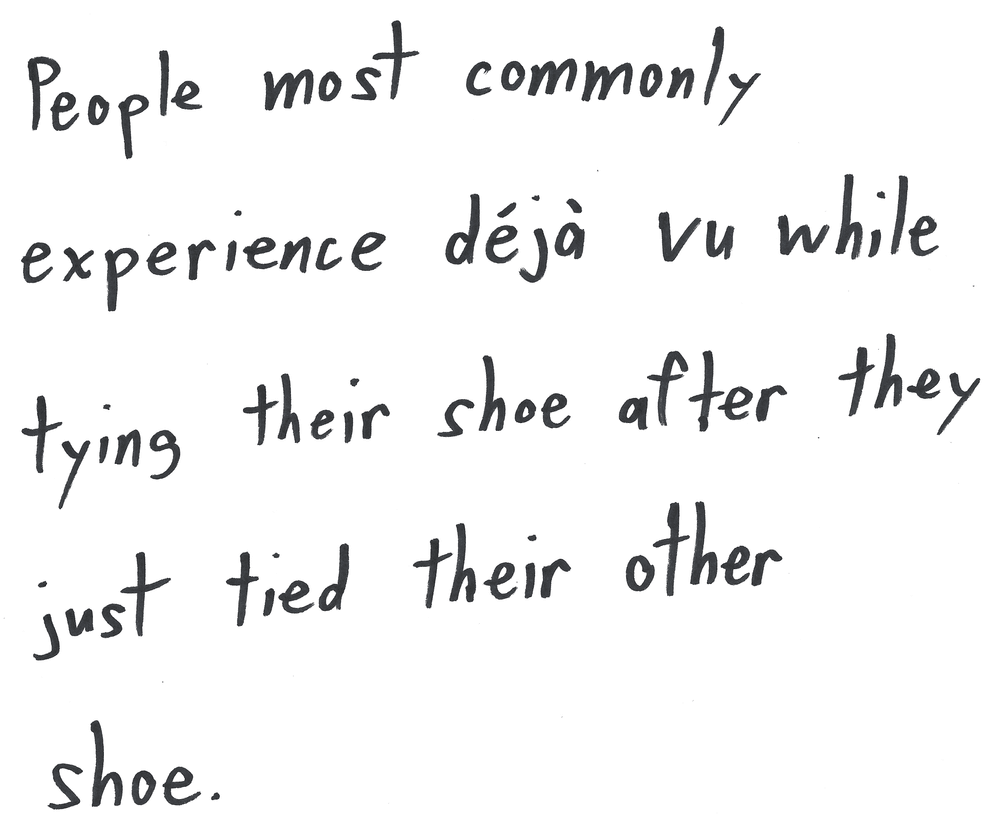 People most commonly
experience déjà vu while
tying their shoe after they
just tied their other
shoe.